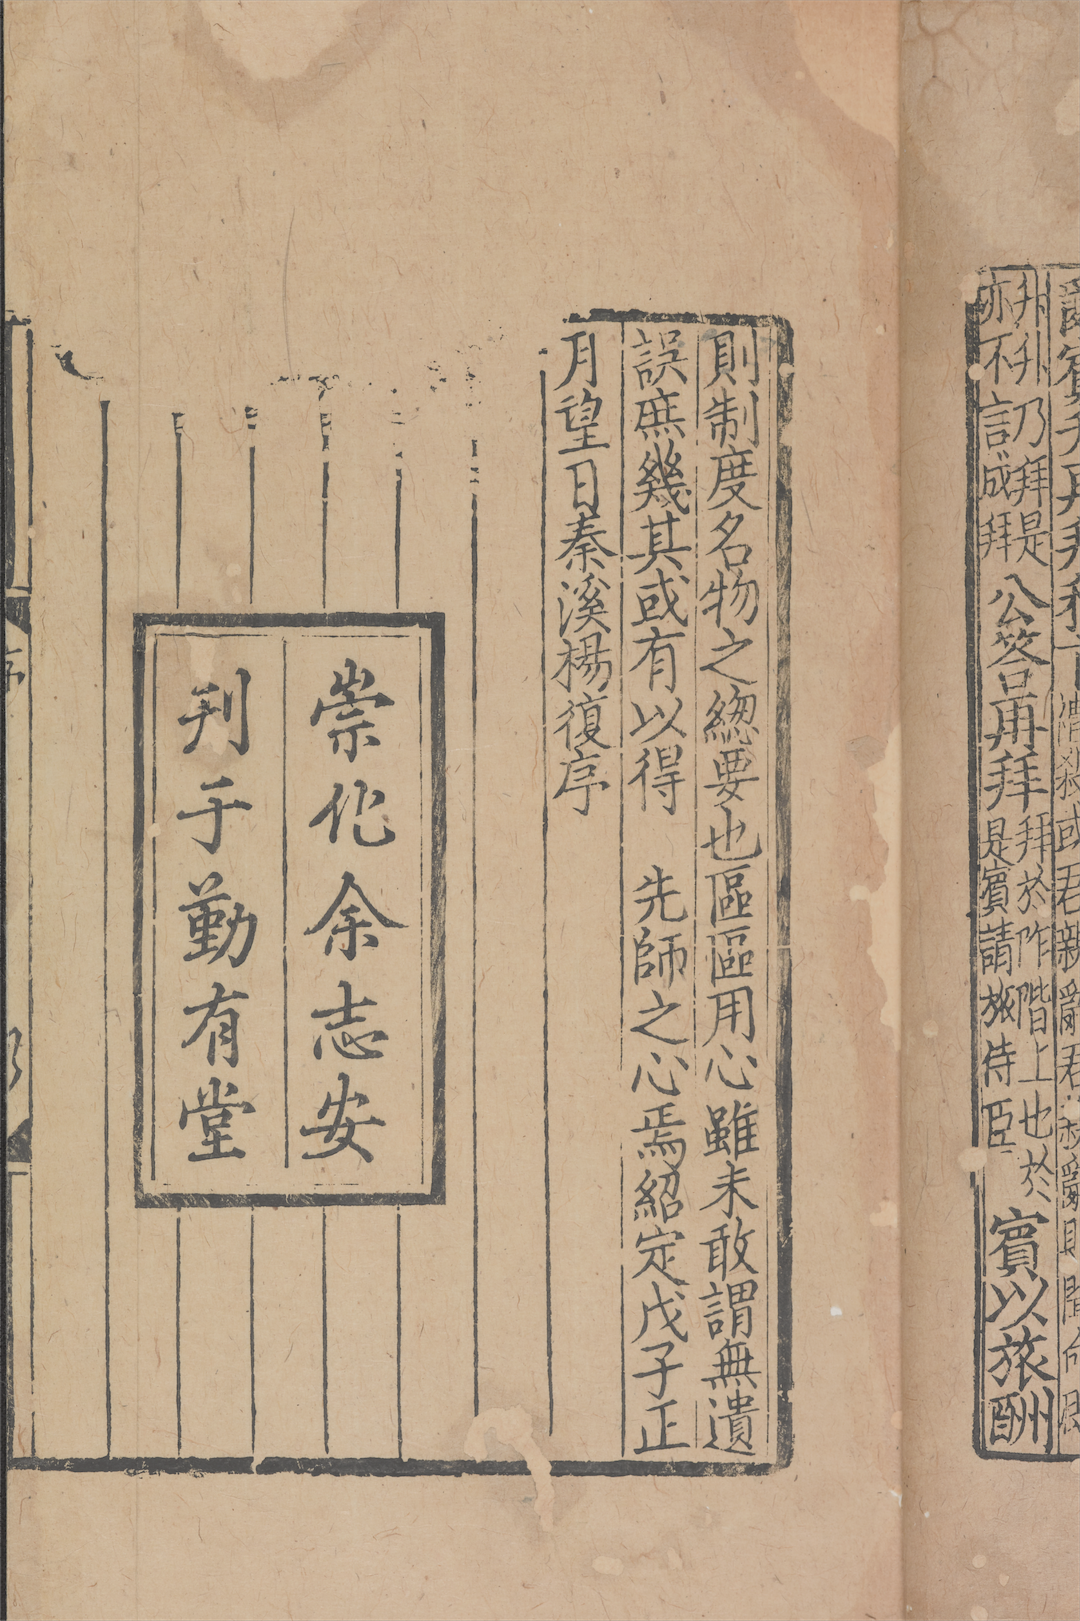 升升乃拜是亦不言成拜公答再拜拜於阼階上也於是賓請旅侍臣賓以旅酬
則制度名物之緫要也區區用心雖未敢謂無遺
誤庶幾其或有以得　先師之心焉紹定戊子正
月望日秦溪楊復序
崇化余志安
刊于勤有堂
序